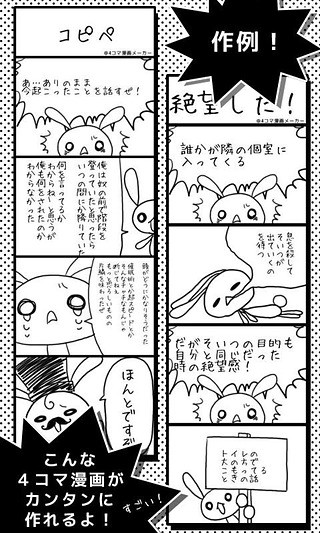 コピペ
@4コマ漫画メーカー
あ…ありのまま
今起こったことを話すぜ！
俺は奴の前で階段を
登っていたと思ったら
いつの間にか降りていた
何を言ってるか
わからねーと思うが
俺も何をされたのか
わからなかった
頭がどうにかなりそうだった
催眠術とか超スピードとか
そんなチャチなもんじゃ
断じてねえ
もっと恐ろしいものの
片鱗を味わったぜ
ほんとですぞ
作例！
絶望した！
@4コマ漫画メーカー
誰かが隣の個室に
入ってくる
息を殺して
そいつが
出ていくの
を待つ
だがそいつの目的も
自分と同じだった
時の絶望感！
ので てる
レちっ の
イのも き話
トと
こんな
4コマ漫画が
カンタンに
作れるよ！
すごい！